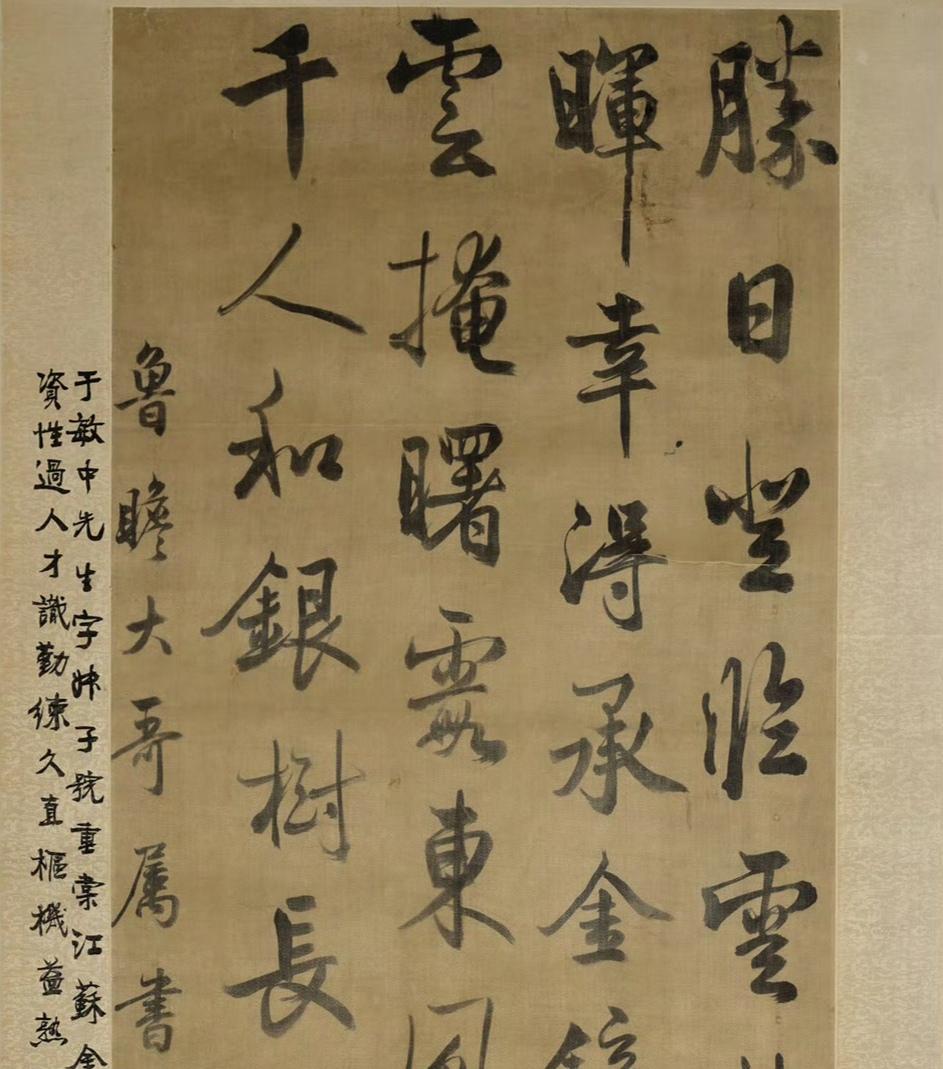 勝日登臨雲
暉幸得承金
雲掩曙霞東
千人和銀樹長
魯瞻大哥属書
于敏中先生字𬀩子號重棠江蘇金
資性過人才識勤練久直樞機益熟